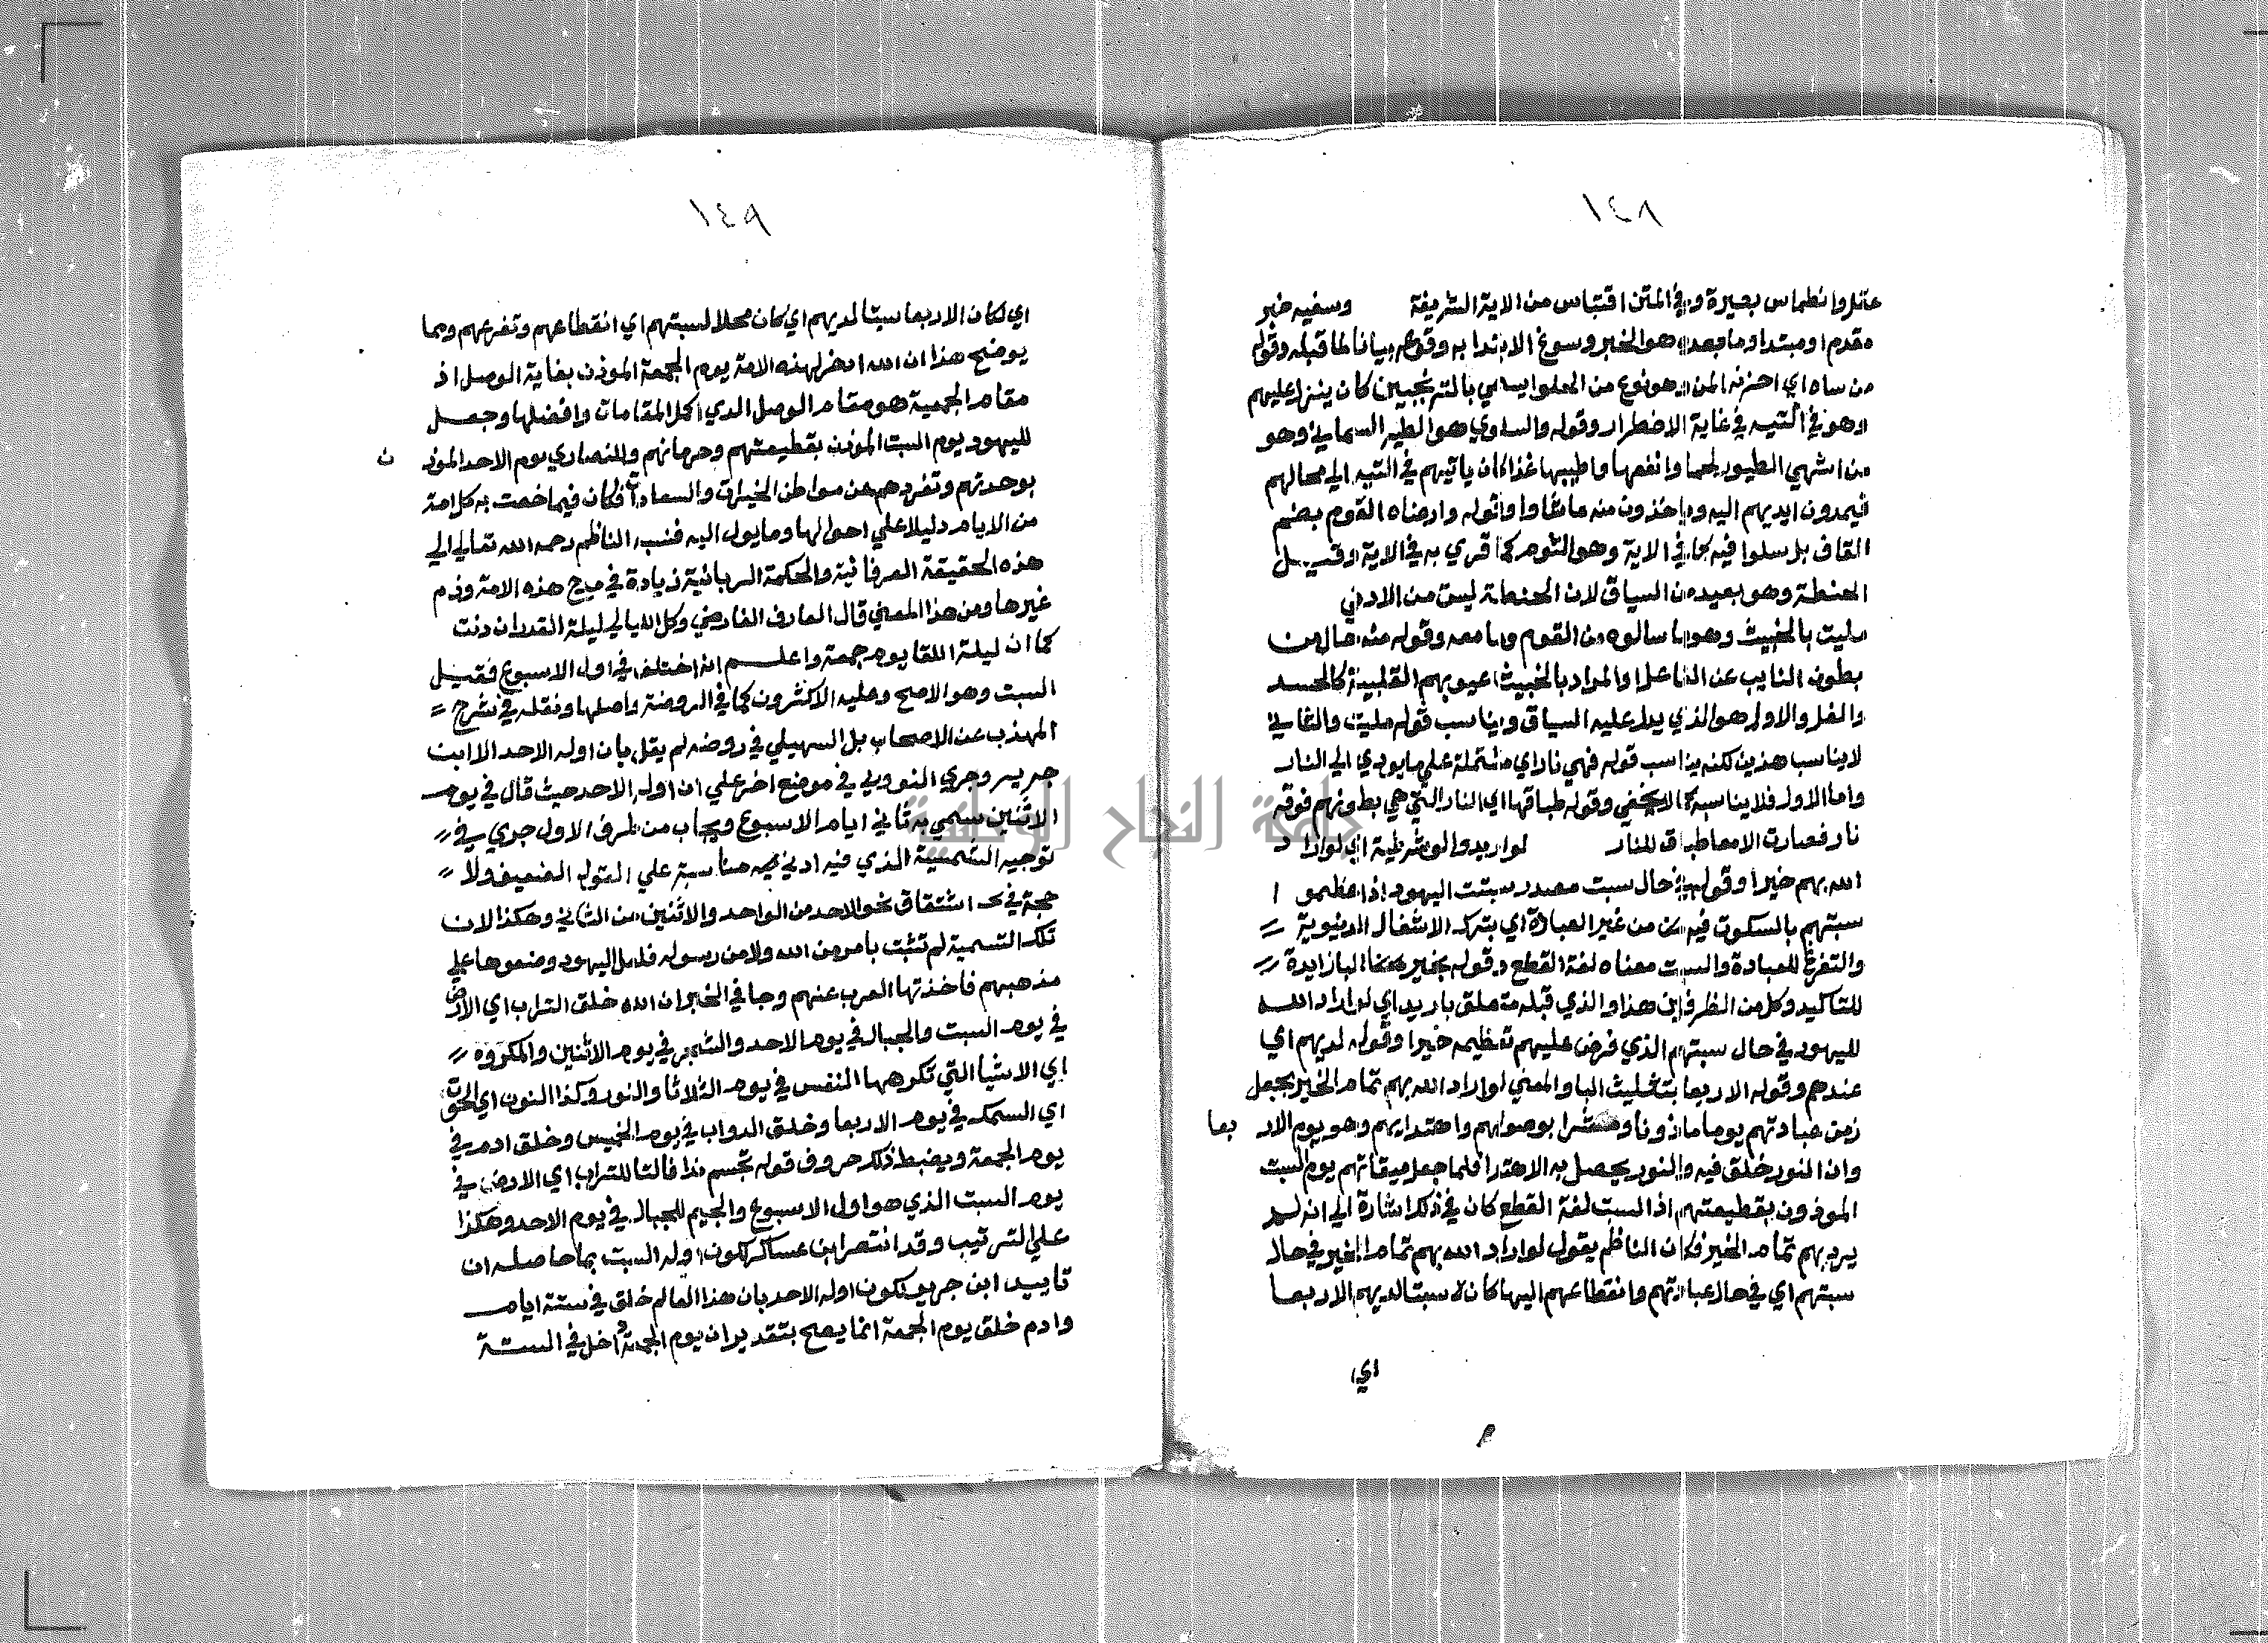 ١٤٨
عقل وانطماس بصيرة وفي المتن اقتباس من الاية الشريفة وسفيه خبر
مقدم او مبتدا وما بعده هو الخبر وسوغ الابتدا به وقوعه بيانا لما قبله وقوله
من ساه اي احزنه المن هو نوع من الحلوا يسمي بالترنجبين كان ينزل عليهم
وهو في التيه في غاية الاضطرار وقوله والسلوي هو الطير السماني وهو
من اشهي الطيور لحما وانفعها واطيبها غذا كان ياتيهم في التيه الي محالهم
فيمدون ايديهم اليه وياخذون منه ما شاوا وقوله وارضاه القوم بضم
القاف بل سلوا فيه كما في الاية وهو الثوم كما قري به في الاية وقيل
الحنطة وهو بعيد من السياق لان الحنطة ليست من الادني
مليت بالخبيث وهو ما سالوه من القوم وما معه وقوله منه حال من
بطون النايب عن الفاعل والمراد بالخبيث عيوبهم القلبية كالحسد
والغل والاول هو الذي يدل عليه السياق ويناسب قوله مليت والثاني
لا يناسب هذين لكنه يناسب قوله فهي نار اي مشتملة علي ما يودي الي النار
واما الاول فلا يناسبه كما لا يخفي وقوله طباقها اي النار التي هي بطونهم فوقه
نار فصارت الامعا طباق للنار لو اريدوا لو شرطية اي لو اراد
الله بهم خيرا وقوله في حال سبت مصدر سبتت اليهود اذا عظموا
سبتهم بالسكون فيه عن غير العبادة اي بترك الاشغال الدنيوية
والتفرغ للعبادة والسبت معناه لغة القطع وقوله بخير البا زايدة
للتاكيد وكل من الظرفين هذا والذي قبله متعلق باريد اي لو اراد الله
لليهود في حال سبتهم الذي فرض عليهم تعظيمه خيرا وقوله لديهم اي
عندهم وقوله الاربعا بتثليث البا والمعني لو اراد الله بهم تمام الخير لجعل
زمن عبادتهم يوما ماذونا بوصولهم واهتدايهم وهو يوم الاربعا
وان النور خلق فيه والنور يحصل به الاهتدا فلما جعل ميقاتهم يوم السبت
الموذون بقطيعتهم اذ السبت لغة القطع كان في ذلك اشارة الي انه لم
يرد بهم تمام الخير فكان الناظم يقول لو اراد الله بهم تمام الخير في حال
سبتهم اي في حال عبادتهم وانقطاعهم اليها كان لا سبتا لديهم الاربعا
اي
١٤٩
اي لكان الاربعا سبتا لديهم اي كان محلا لسبتهم اي انقطاعهم وتفرغهم ومما
يوضح هذا ان الله ادخر لهذه الامة يوم الجمعة الموذن بغاية الوصل اذ
مقام الجمعية هو مقام الوصل الذي اكمل المقامات وافضلها وجعل
لليهود يوم السبت الموذن بقطيعتهم وحرمانهم وللنصاري يوم الاحد الموذن
بوحدتهم وتفردهم عن مواطن الخيرات والسعادات فكان فيما خصت به كل امة
من الايام دليلا علي احوالها وما يول اليه فنبه الناظم رحمه الله تعالي الي
هذه الحقيقة العرفانية والحكمة الربانية زيادة في مدح هذه الامة وذم
غيرها ومن هذا المعني قال العارف الفارضي وكل الليالي ليلة القدر ان دنت
كما ان ليلة اللقا يوم جمعة واعلم انه اختلف في اول الاسبوع فقيل
السبت وهو الاصح وعليه الاكثرون كما في الروضة واصلها ونقله في شرح
المهذب عن الاصحاب بل السهيلي في روضه لم يقل بان اوله الاحد الا ابن
جرير وجري النووي في موضع اخر علي ان اوله الاحد حيث قال في يوم
الاثنين سمي به ثاني ايام الاسبوع ويجاب من طرف الاول جري في
توجيه التسمية الذي فيه ادني مناسبة علي القول الضعيف ولا
حجة في اشتقاق نحو الاحد من الواحد والاثنين من الثاني وهكذا لان
تلك التسمية لم تثبت بامر من الله ولا من رسوله فلعل اليهود وضعوها علي
مذهبهم فاخذتها العرب عنهم وجا في الخبر ان الله خلق التراب اي الارض
في يوم السبت والجبال في يوم الاحد والشجر في يوم الاثنين والمكروه
اي الاشيا التي تكرهها النفس في يوم الثلاثا والنور وكذا النون اي الحوت
اي السمك في يوم الاربعا وخلق الدواب في يوم الخميس وخلق ادم في
يوم الجمعة ويضبط ذلك حروف قوله تجسم ندا فالتا للتراب اي الارض في
يوم السبت الذي هو اول الاسبوع والجيم للجبال في يوم الاحد وهكذا
علي الترتيب وقد انتصر ابن عساكر لكون اوله السبت بما حاصله ان
تاييد ابن جرير لكون اوله الاحد بان هذا العالم خلق في ستة ايام
وادم خلق يوم الجمعة انما يصح بتقدير ان يوم الجمعة داخل في الستة
جامعة النجاح الوطنية